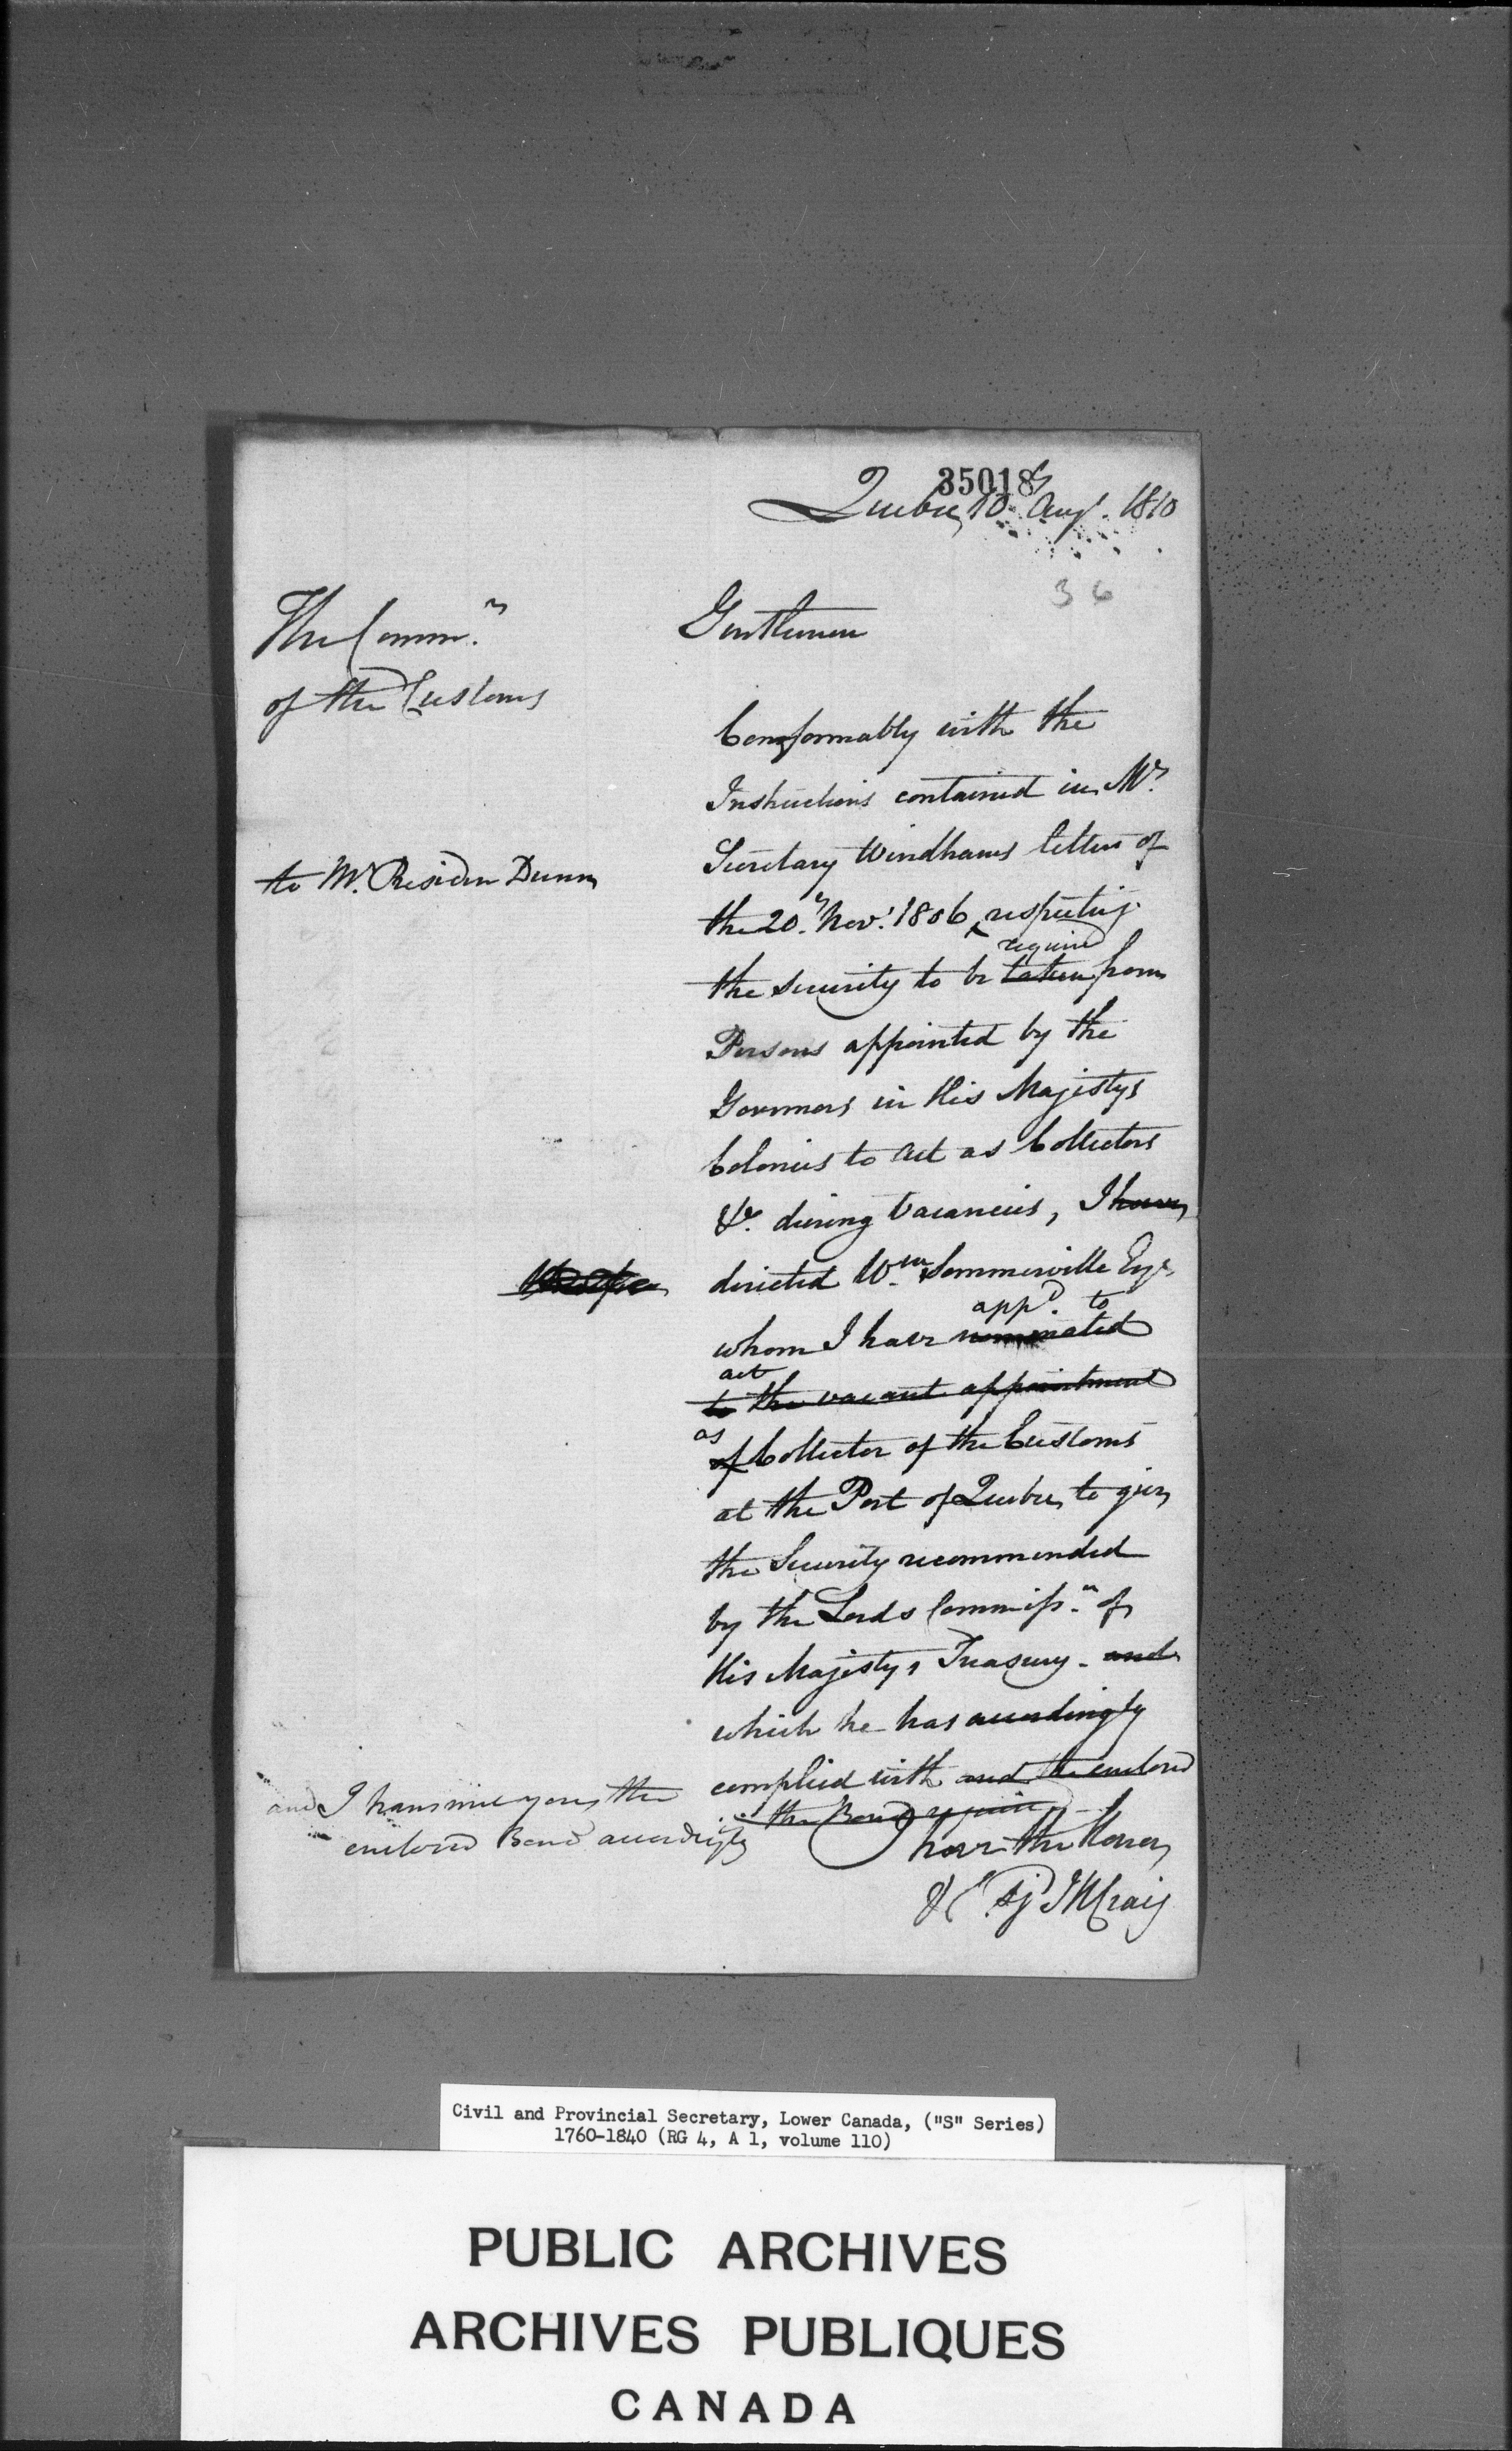 35018
Quebec 10th Augt. 1810
36
The Commrs
of the Customs
Gentlemen
Conformably with the
Instructions contained in Mr.
Secretary Windhams letter of
to Mr. Presiden Dunn
the 20th Novr. 1806, respecting
required
the security to be taken from
Persons appointed by the
Governors in His Majestys
Colonies to act as Collectors
&c. during vacancies, I have
directed Wm. Sommerville Esqr.
appd. to
whom I have nominated
act
to the vacant appointment
as
of Collector of the Customs
at the Port of Quebec to give
the Security recommended
by the Lords Commissrs. of
His Majestys Treasury - and
which he has accordingly
complied with and the enclosed
the Bond
and I transmit you the
enclosed Bond accordingly
I have the Honor
&c. Sigd JHCraig
Civil and Provincial Secretary, Lower Canada, ("S" Series)
1760-1840 (RG 4, A 1, volume 110)
PUBLIC ARCHIVES
ARCHIVES PUBLIQUES
CANADA